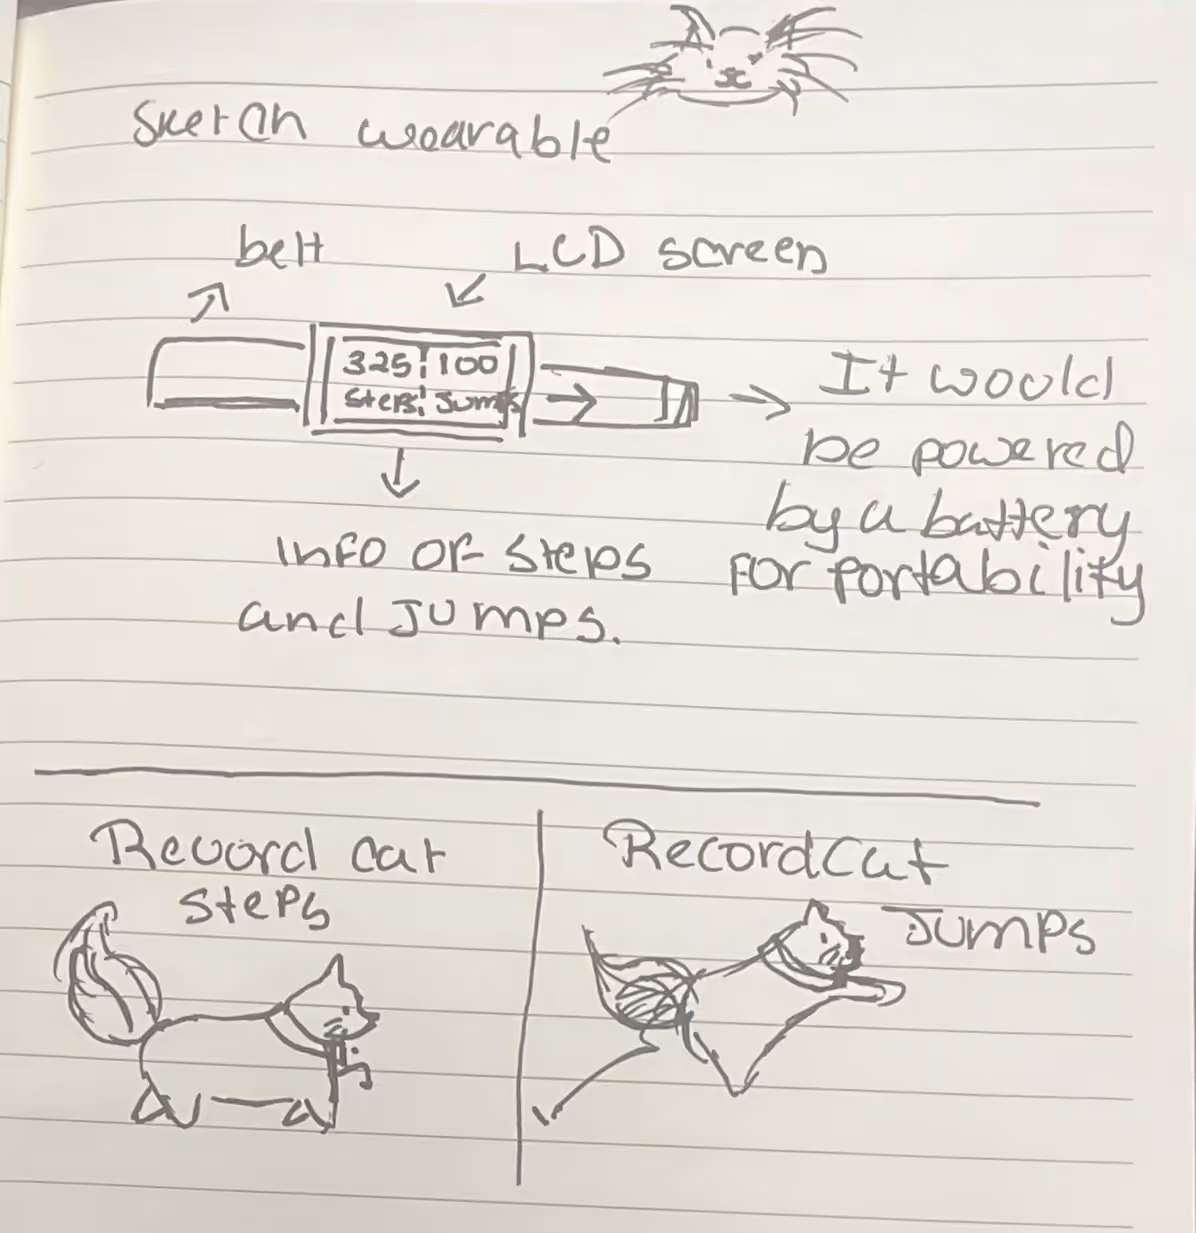 Sketch wearable
belt
LCD screen
325 100
Steps Jumps
It would
be powered
by a battery
for portability
Info of steps
and Jumps.
Record cat
steps
Record Cat
Jumps